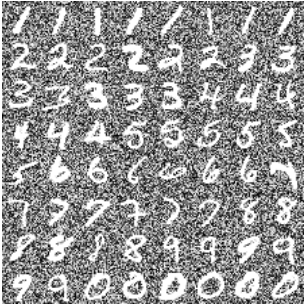 1 1 1 1 1 1 1 1
2 2 2 2 2 2 2 3
3 3 3 3 3 4 4 4
4 4 4 5 5 5 5 5
5 6 6 6 6 6 6 7
7 7 7 7 7 7 8 8
8 8 8 8 9 9 9 9
9 9 0 0 0 0 0 0